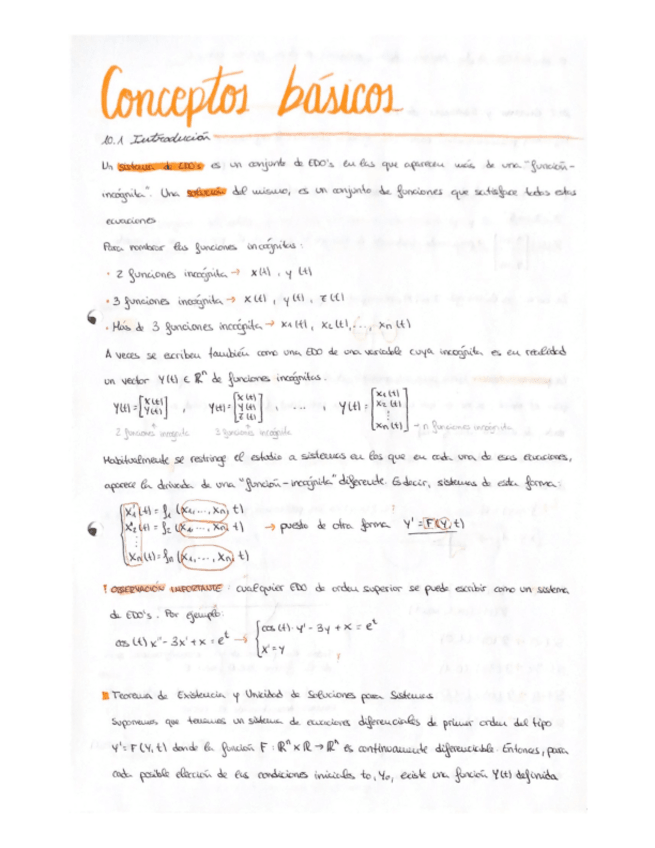 Conceptos básicos
10.1 Introducción
Un sistema de EDO's es un conjunto de EDO's en las que aparecen más de una "función-
incógnita". Una solución del mismo, es un conjunto de funciones que satisface todas estas
ecuaciones
Para nombrar las funciones incógnitas:
· 2 funciones incógnita → x(t), y(t)
· 3 funciones incógnita → x(t), y(t), z(t)
· Más de 3 funciones incógnita → x₁(t), x₂(t), ..., xn(t)
A veces se escriben también como una EDO de una variable cuya incógnita es en realidad
un vector Y(t) ∈ ℝⁿ de funciones incógnitas.
Y(t) = [x(t) y(t)], Y(t) = [x(t) y(t) z(t)], ...., Y(t) = [x₁(t) x₂(t) ⋮ xn(t)] → n funciones incógnita
2 funciones incógnita 3 funciones incógnita
Habitualmente se restringe el estudio a sistemas en los que en cada una de esas ecuaciones,
aparece la derivada de una "función-incógnita" diferente. Es decir, sistemas de esta forma:
x'₁(t) = f₁(x₁, ..., xn, t)
x'₂(t) = f₂(x₁, ..., xn, t) → puesto de otra forma Y' = F(Y, t)
⋮
x'n(t) = fn(x₁, ..., xn, t)
! OBSERVACIÓN IMPORTANTE: cualquier EDO de orden superior se puede escribir como un sistema
de EDO's. Por ejemplo:
cos(t) x'' - 3x' + x = eᵗ → { cos(t)·y' - 3y + x = eᵗ
x' = y
Teorema de Existencia y Unicidad de Soluciones para Sistemas
Suponemos que tenemos un sistema de ecuaciones diferenciales de primer orden del tipo
Y' = F(Y, t) donde la función F: ℝⁿ × ℝ → ℝⁿ es continuamente diferenciable. Entonces, para
cada posible elección de las condiciones iniciales t₀, Y₀, existe una función Y(t) definida